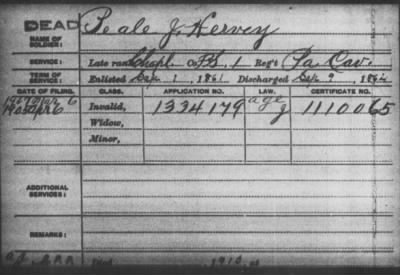 DEAD
NAME OF SOLDIER: Peale J. Hervey
SERVICE: Late rank Chapl. Co. FS, 1 Reg't Pa Cav.
TERM OF SERVICE: Enlisted Sep 1, 1861 Discharged Sep 9, 1864
DATE OF FILING. CLASS. APPLICATION NO. LAW. CERTIFICATE NO.
1907 Mar 6 Invalid, 1334179 age 1110065
Widow,
Minor,
ADDITIONAL SERVICES:
REMARKS: